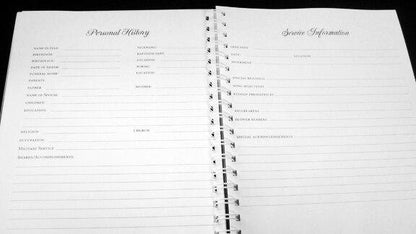 Personal History
NAME IN FULL NICKNAME
BIRTHDATE
BIRTHPLACE
DATE OF DEATH
FUNERAL HOME LOCATION
PARENTS
FATHER MOTHER
NAME OF SPOUSE
CHILDREN
EDUCATION
RELIGION CHURCH
OCCUPATION
MILITARY SERVICE
AWARDS/ACCOMPLISHMENTS
Service Information
DATE LOCATION
SPECIAL READINGS
SONG SELECTIONS
PALLBEARERS
FLOWER BEARERS
SPECIAL ACKNOWLEDGEMENTS